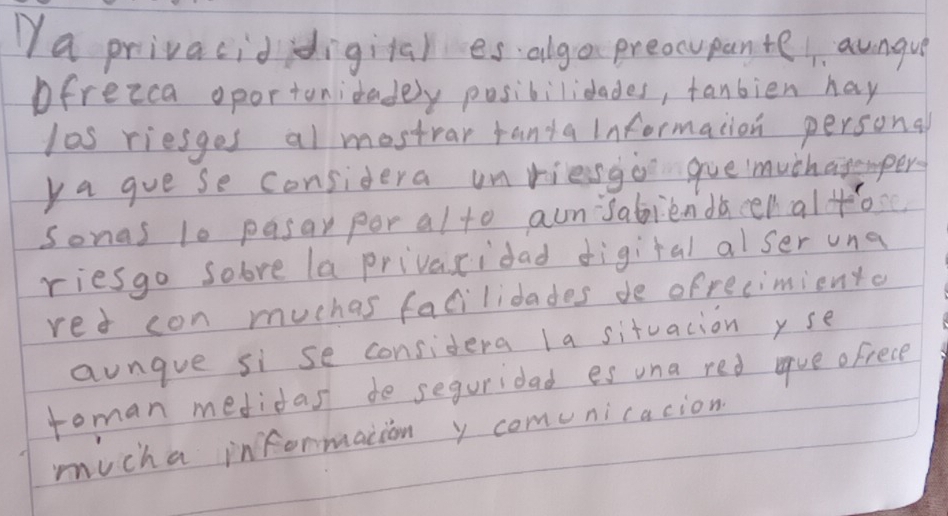 Ya privacid digital es algo preocupante, aunque
Ofrezca oportunidades y posibilidades, tanbien hay
los riesgos al mostrar tanta Información personal
ya que se considera un riesgo que muchas per-
sonas lo pasar por alto aun sabiendo el alto
riesgo sobre la privacidad digital al ser una
red con muchas facilidades de ofrecimiento
aunque si se considera la situación y se
toman medidas de seguridad es una red que ofrece
mucha información y comunicacion.